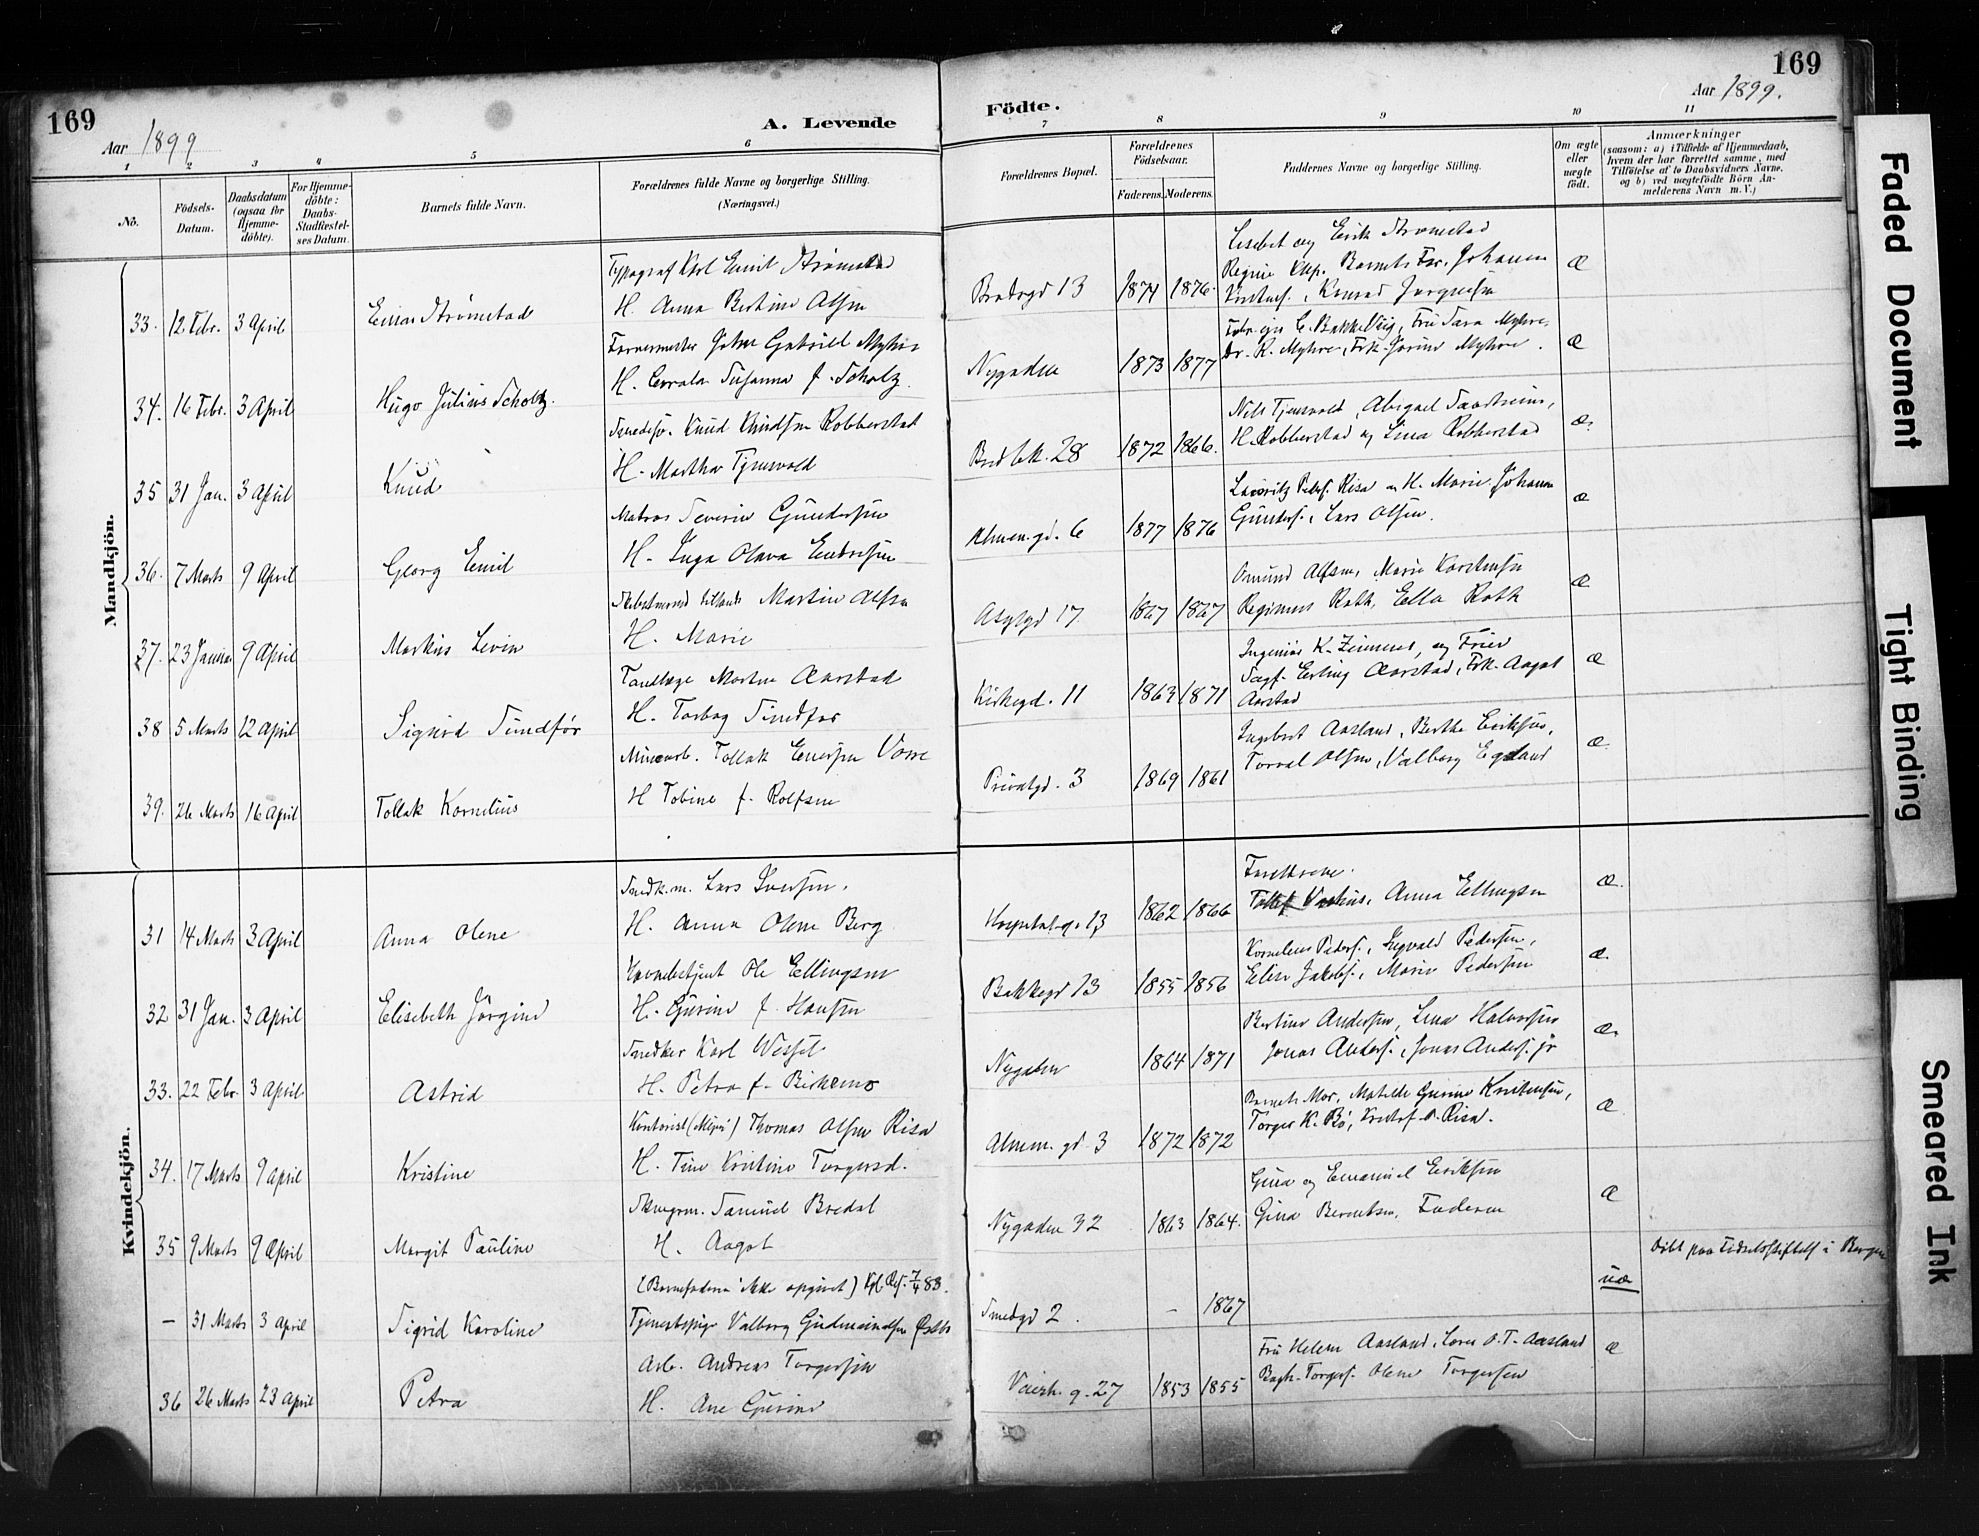 169
Aar 1899
A. Levende
Födte.
Aar 1899.
169
1 2 3 4 5 6 7 8 9 10 11
No.
Födsels-
Datum.
Daabsdatum
(ogsaa for
Hjemme-
döbte).
For Hjemme-
döbte:
Daabs-
Stadfæstel-
ses Datum.
Barnets fulde Navn.
Forældrenes fulde Navne og borgerlige Stilling.
(Næringsvei.)
Forældrenes Bopæl.
Forældrenes
Födselsaar.
Faderens. Moderens.
Faddernes Navne og borgerlige Stilling.
Om ægte
eller
uægte
födt.
Anmærkninger
(saasom: a) i Tilfælde af Hjemmedaab,
hvem der har forrettet samme, med
Tilföielse af to Daabsvidners Navne,
og b) ved uægtefödte Börn An-
melderens Navn m. V.)
Mandkjön.
Typograf Karl Emil Strømstad
33. 12 Febr. 3 April Einar Strømstad H. Anna Bertine Olsen
Bredegd 13 1874 1876.
Lisebet og Erik Strømstad
Regine Barnets Far. Johanna
Konrad Jørgensen
æ
Farvermester John Gabriel Myhre
34. 16 Febr. 3 April Hugo Julius Scholtz. H. Susanna f. Scholz.
Nygaden 1873 1877
Fru Sara Myhre,
K. Myhre, Frk. Myhre.
æ
Knud Knudsen Robberstad
35 31 Jan. 3 April Knud H. Martha Tjensvold
28 1872 1866.
Nils Tjensvold, Abigael
H. Robberstad og Lina Robberstad
æ.
Matros Severin Gundersen
36. 7 Marts 9 April Georg Emil H. Inga Olava Endresen
Almen.gd. 6 1877 1876
Lauritz Peders. Risa og H. Marie. Johanna
Gunders., Lars Olsen.
æ
Martin Olsen
37. 23 Januar 9 April Markus Levin H. Marie
Asylgd 17 1867 1867
Omund Olsen, Marie Karstensen
Regimus Roth, Ella Roth
æ
Tandlæge Morten Aarstad
38 5 Marts 12 April Sigurd Sundför H. Torborg Sundfør
Kirkegd. 11 1863 1871
Ingeniør K. Zimmer, og Frue
Sagf. Erling Aarstad, Frk. Aagot
Aarstad
æ
Minearb. Tollak Enersen Vorre
39. 26 Marts 16 April Tollak Kornelius H Tobine f. Rolfsen
Privatgd. 3 1869 1861
Ingebret Aasland, Berthe Eriksen,
Torval Olsen, Valborg Egeland
æ.
Kvindekjön.
Snedk.m. Lars Iversen.
31 14 Marts 3 April Anna Olene H. Anna Olene Berg
Hospitalg. 13 1862 1866
Forældrene.
Anna Ellingsen
æ.
Havnebetjent Ole Ellingsen
32 31 Jan. 3 April Elisebeth Jörgine H. Gurine f. Hansen
Bakkegd 13 1855 1856
Kornelius Peders., Ingvald Pedersen,
Elise Jakobs., Marie Pedersen
æ.
Snedker Karl Wessel
33. 22 Febr. 3 April Astrid H. Petra f. Birkemo
Nygaden 1864 1871
Bertine Andersen, Lina Halvorsen
Jonas Anders., Jonas Anders. jr
æ.
Kontorist Thomas Olsen Risa
34. 17 Marts 9 April Kristine H. Tine Kristine Torgersd.
Almen. gd. 3 1872 1872
Barnets Mor, Matilde Gurine Kristensen,
Torger K. Bø, Kristof. O. Risa.
æ
Samuel Bredal
35 9 Marts 9 April Margit Pauline H. Aagot
Nygaden 32 1863 1864.
Gina og Emanuel Eriksen
Gina Berntsen. Faderen
æ
(Barnefaderen ikke opgivet) Kgl. Res. 7/4 83.
– 31 Marts 3 April Sigrid Karoline Tjenestepige Valborg Gudmundsen
Smedgd 2. – 1867
uæ
Döbt paa Födselsstiftels i Bergen
Arb. Andreas Torgersen
36 26 Marts 23 April Petra H. Ane Gurine
27 1853 1855
Fru Helene Aasland, O. T. Aasland
Torgers. Olene Torgersen
æ
Faded Document
Tight Binding
Smeared Ink